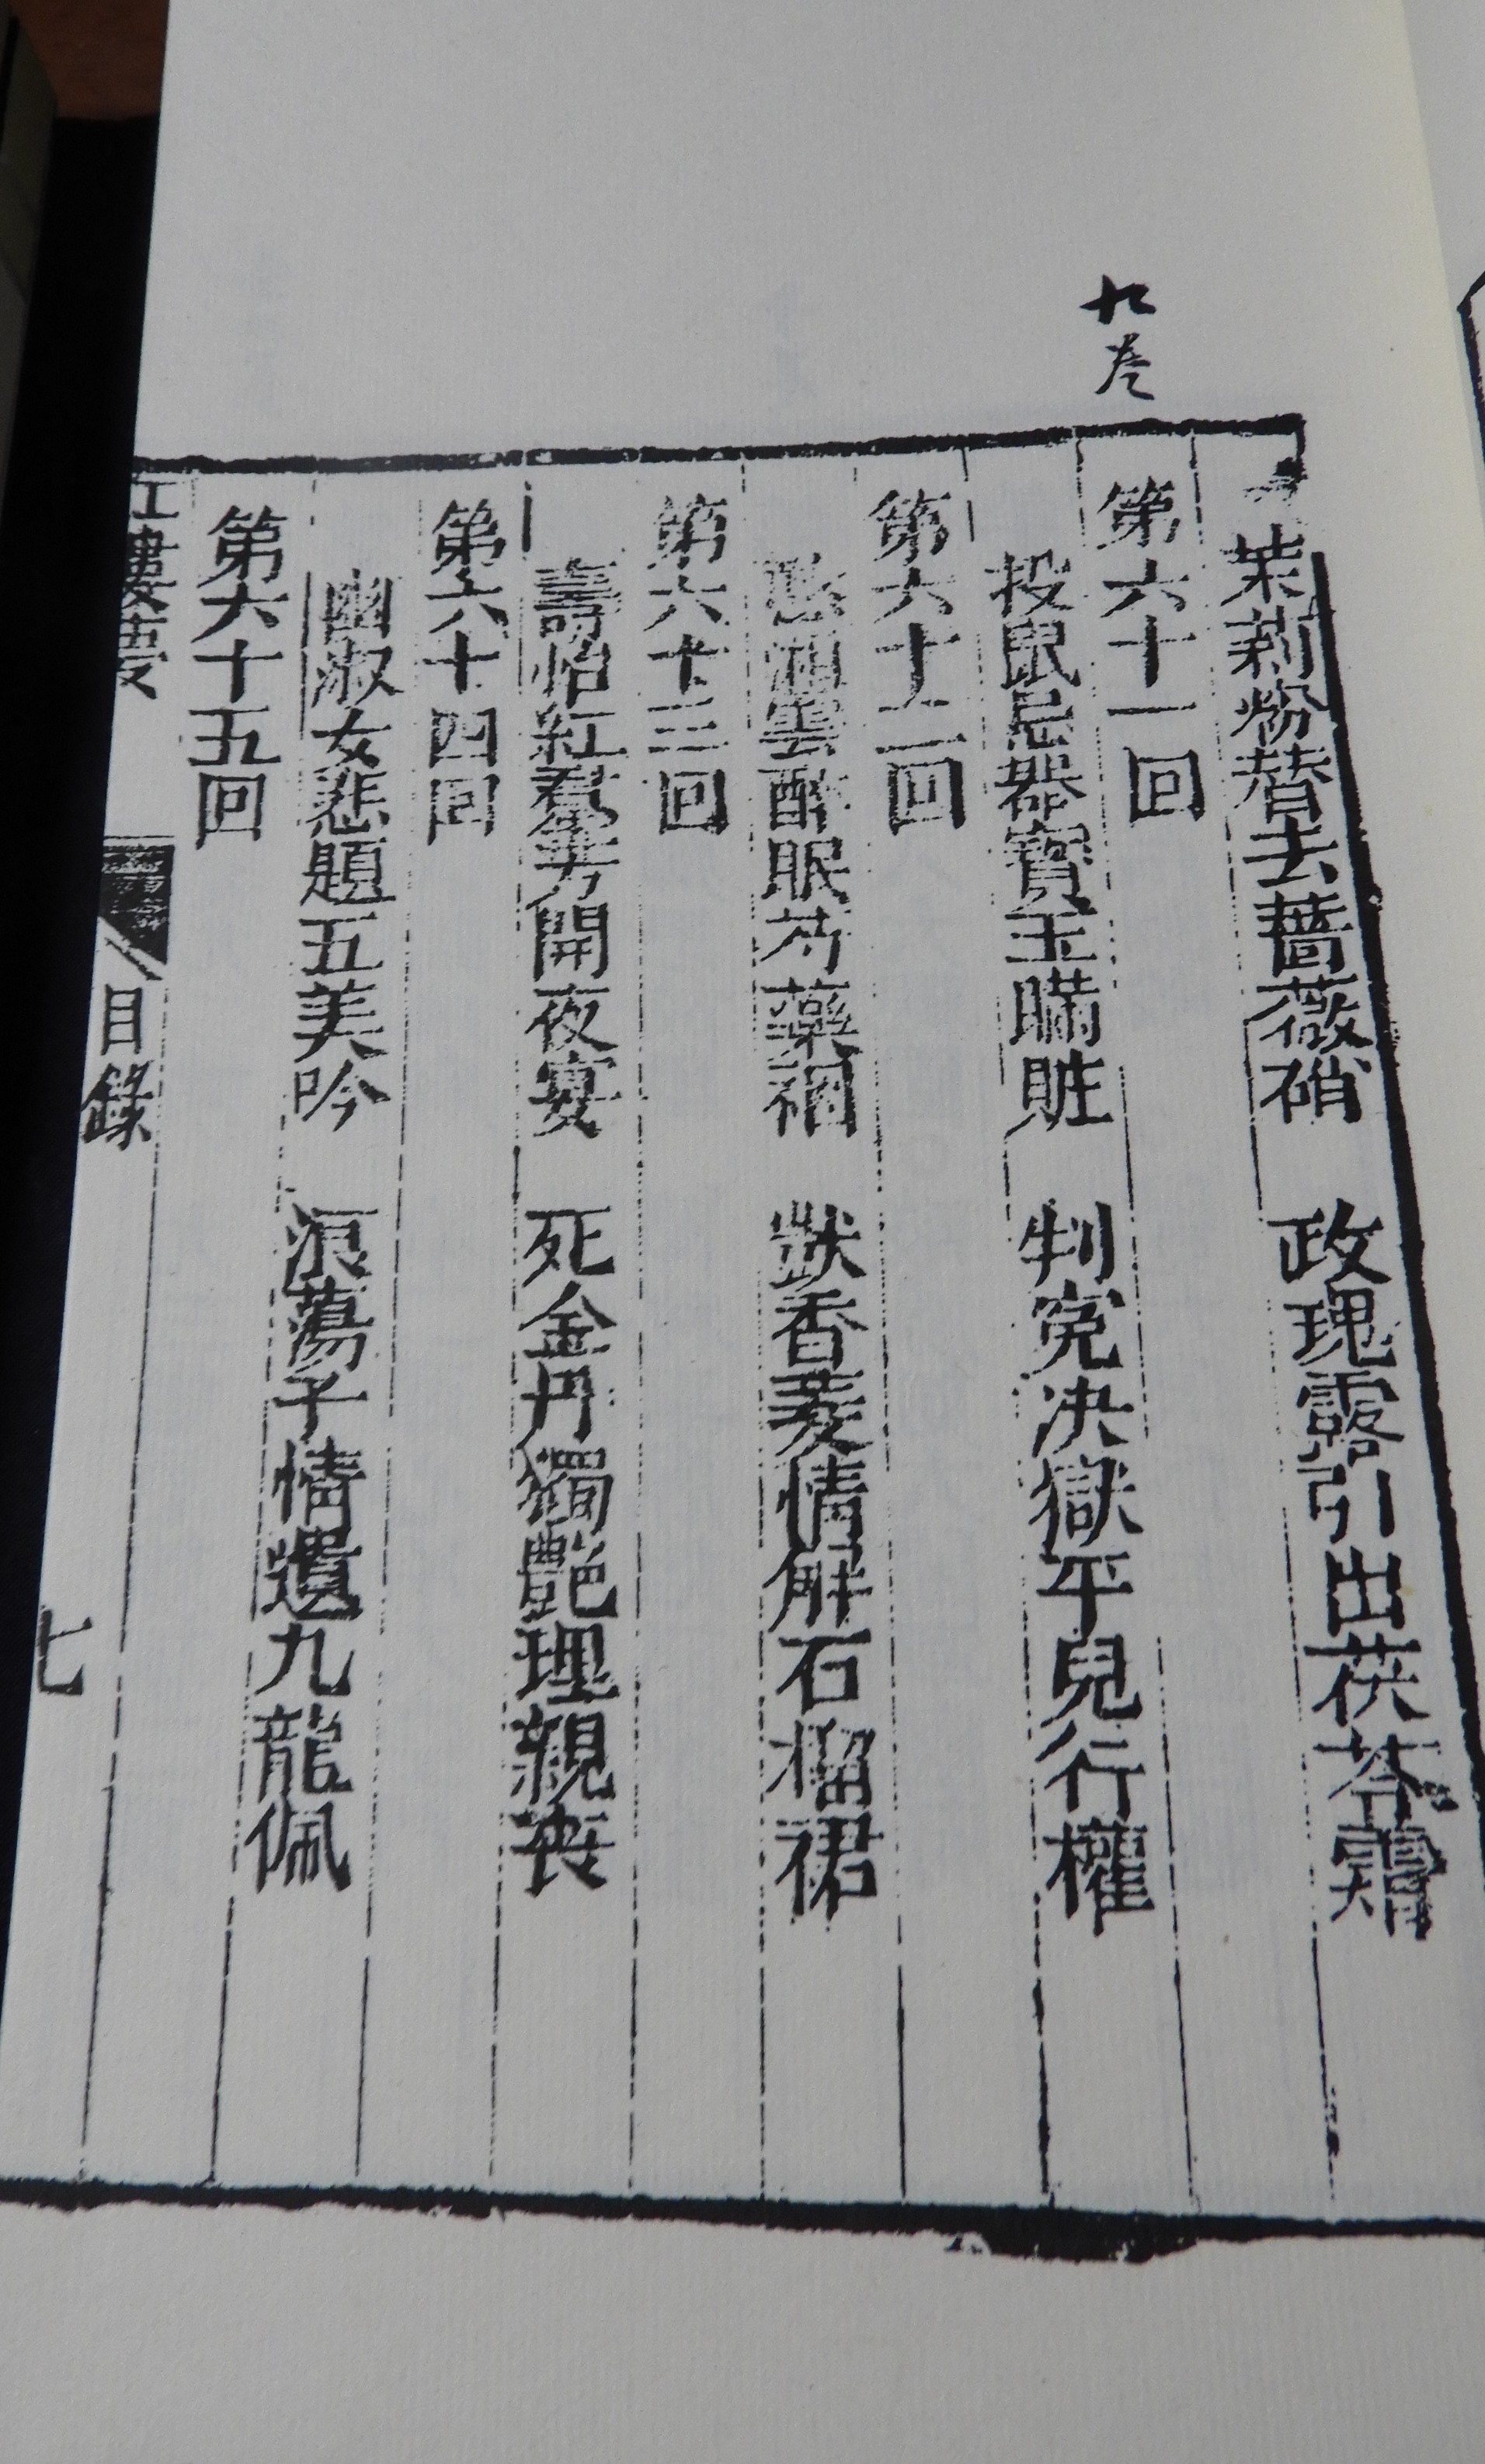 九卷
茉莉粉替去薔薇硝 玫瑰露引出茯苓霜
第六十一回
投鼠忌器寶玉瞞賍 判寃决獄平兒行權
第六十二回
憨湘雲醉眠芍藥裀 獃香菱情解石榴裙
第六十三回
壽怡紅羣芳開夜宴 死金丹獨艷理親喪
第六十四回
幽淑女悲題五美吟 浪蕩子情遺九龍佩
第六十五回
紅樓夢 目錄 七